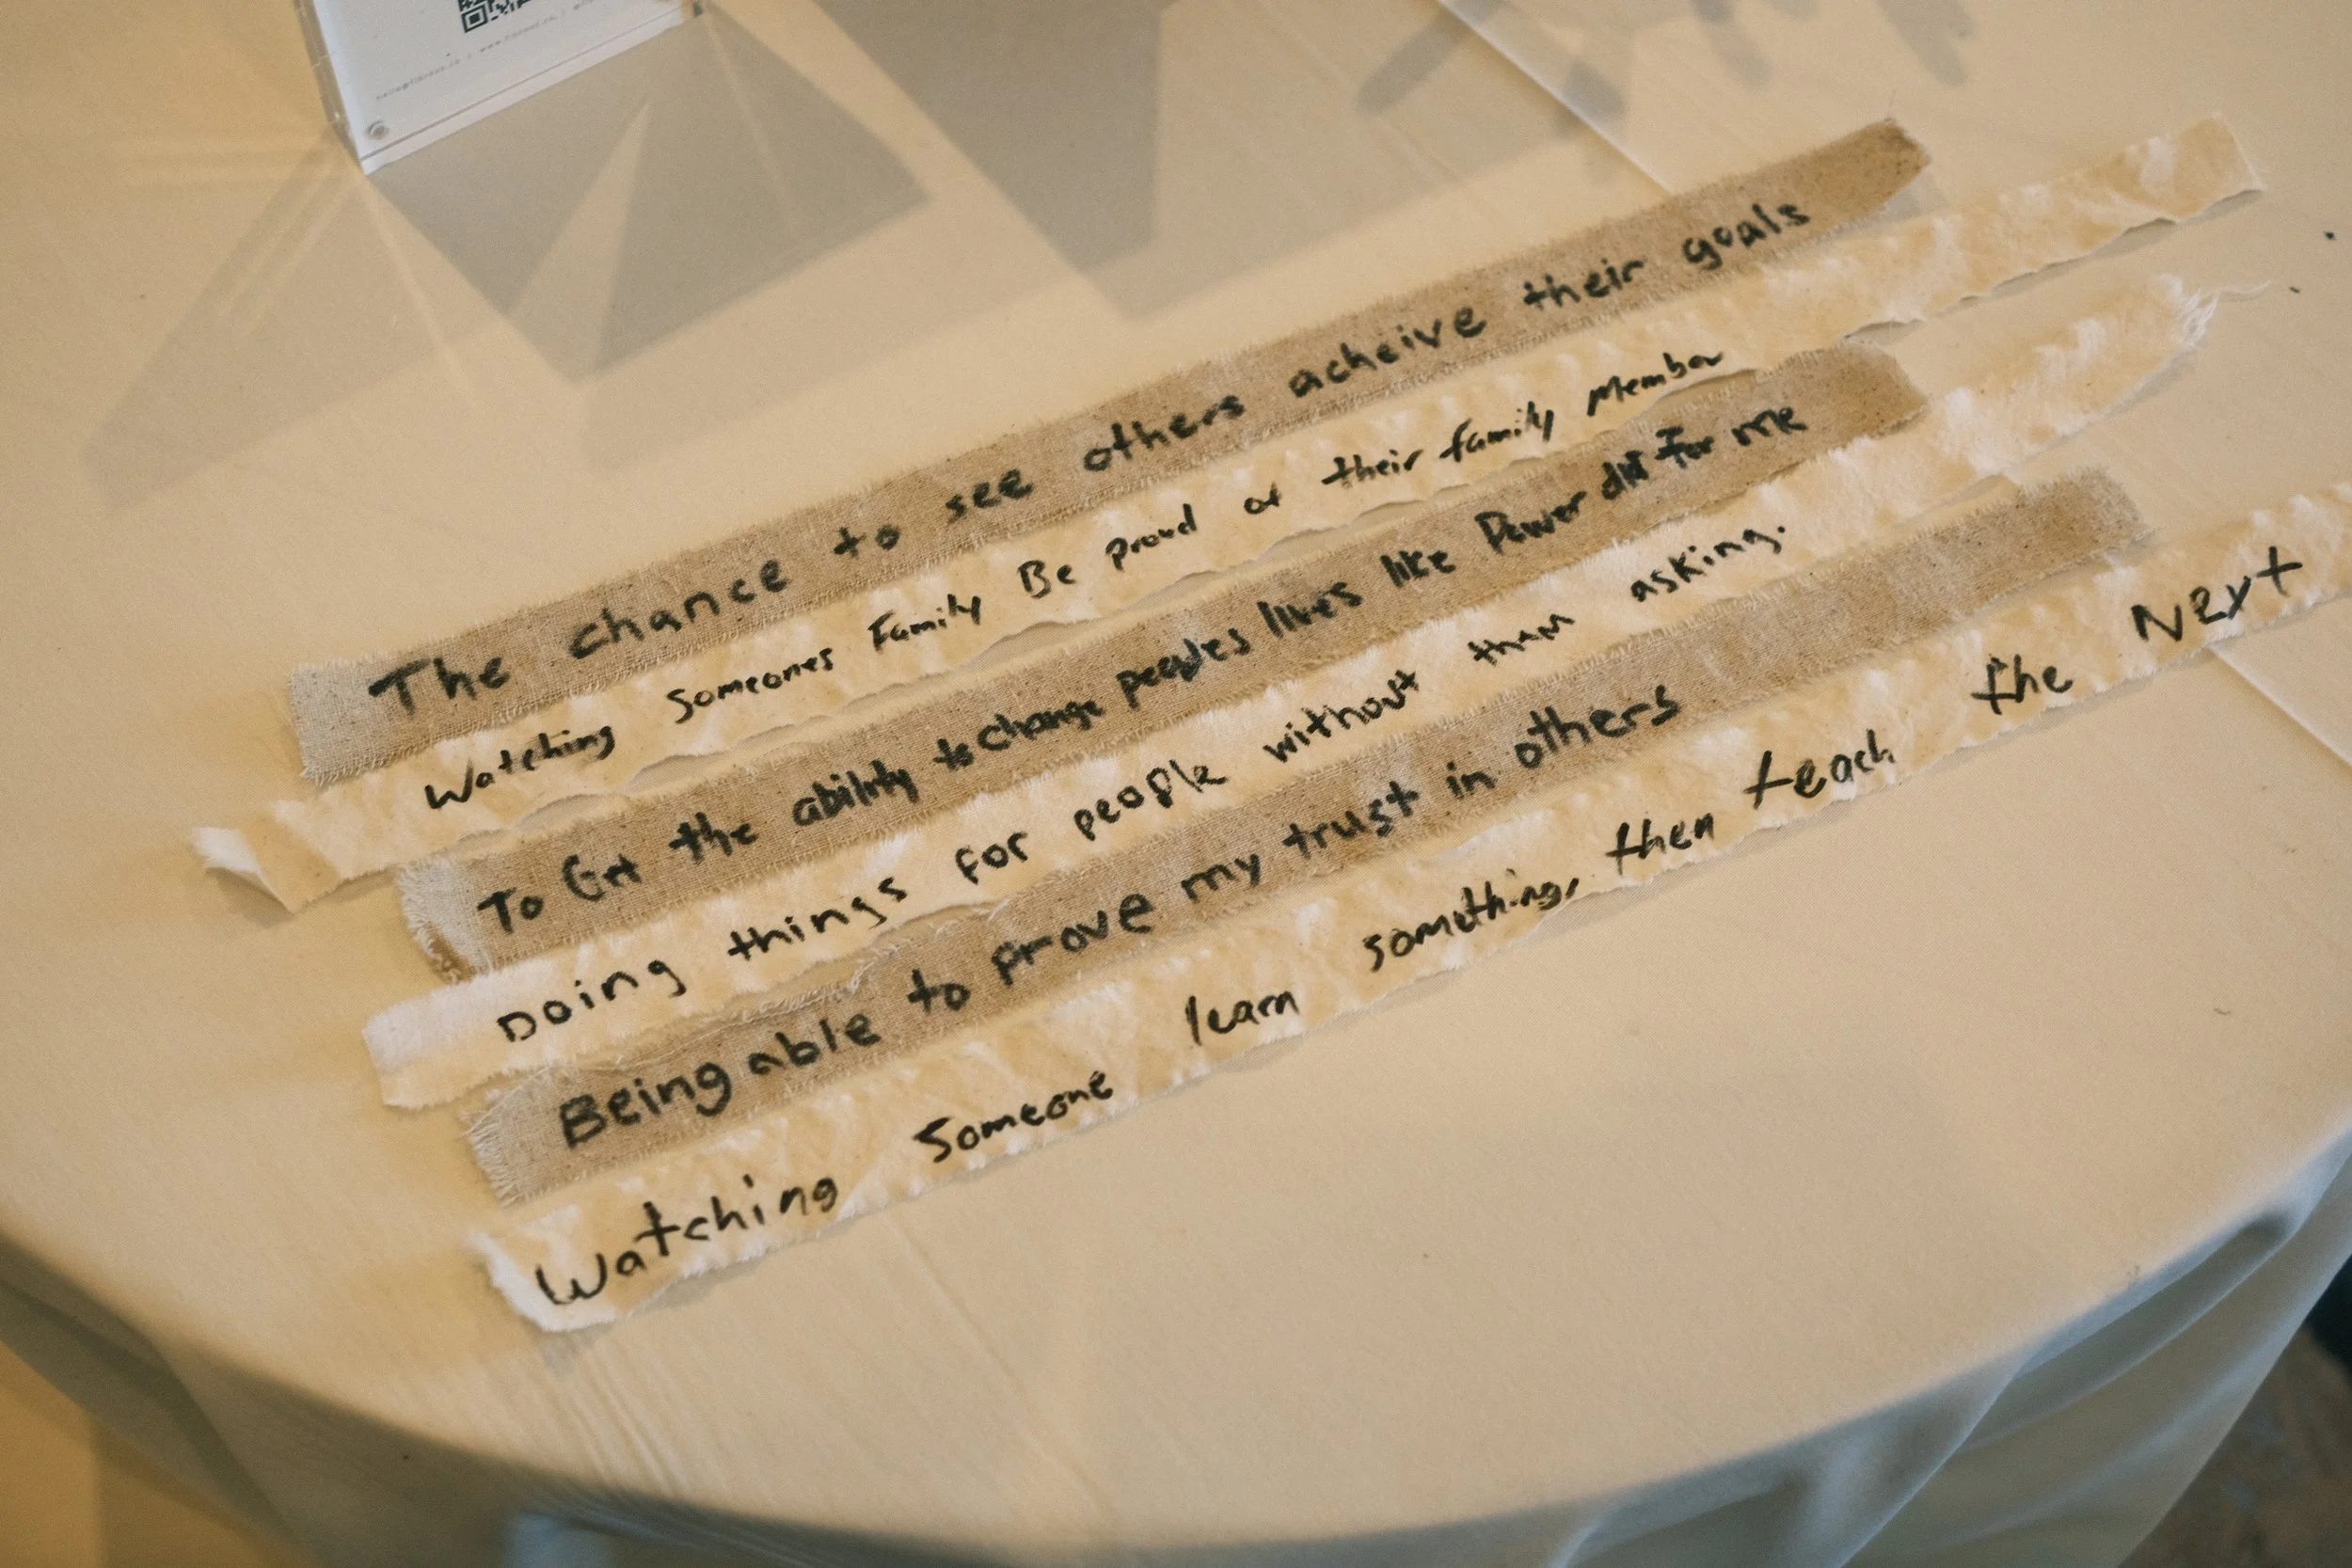 The chance to see others acheive their goals
Watching Someones Family Be proud of their family Member
To Get the ability to change peoples lives like Power did For me
Doing things for people without them asking.
Being able to prove my trust in others
Watching Someone learn something, then teach the Next